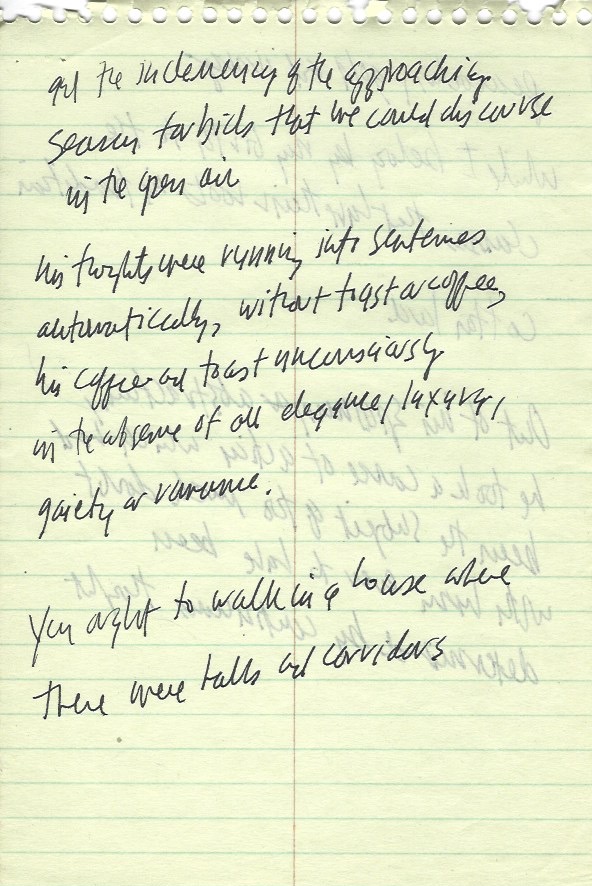 and the inclemency of the approaching
season forbids that we could discourse
in the open air
his thoughts were running into sentences
automatically, without toast or coffee,
his coffee and toast unconsciously
in the absence of all elegance, luxury,
gaiety or romance.
You ought to walk in a house where
there were halls and corridors